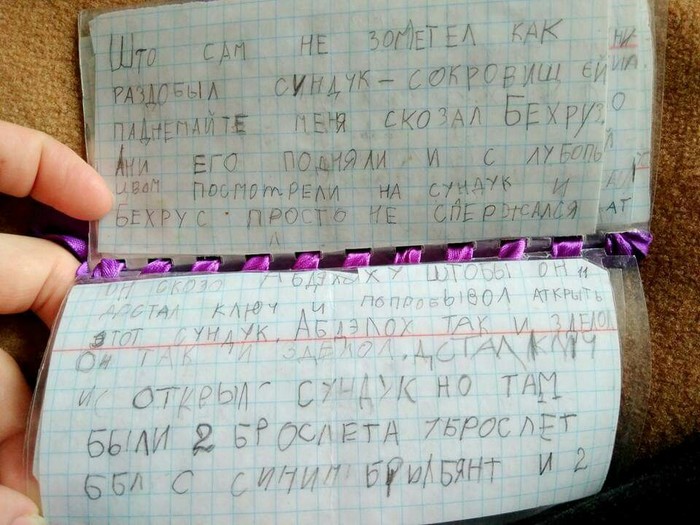 ШТО САМ НЕ ЗОМЕТЕЛ КАК
РАЗДОБЫЛ СУНДУК – СОКРОВИЩ ЕЙ
ПАДНЕМАЙТЕ МЕНЯ СКОЗАЛ БЕХРУЗ
АНИ ЕГО ПОДНЯЛИ И С ЛУБОПЬ
ПОСМОТРЕЛИ НА СУНДУК И
БЕХРУС ПРОСТО НЕ СДЕРЖАЛСЯ
ОН ШТОБЫ ОН
ДАСТАЛ КЛЮЧ И ПОПРОБЫВОЛ АТКРЫТЬ
ЭТОТ СУНДУК. АБДЭЛОХ ТАК И ЗДЕЛОЛ
ОН ТАК И ЗДЕЛОЛ. ДСТАЛ
ОТКРЫЛ СУНДУК НО ТАМ
БЫЛИ 2 БРОСЛЕТА 1 БРОСЛЕТ
БЫЛ С СИНИМ БРЫЛЬЯНТ И 2